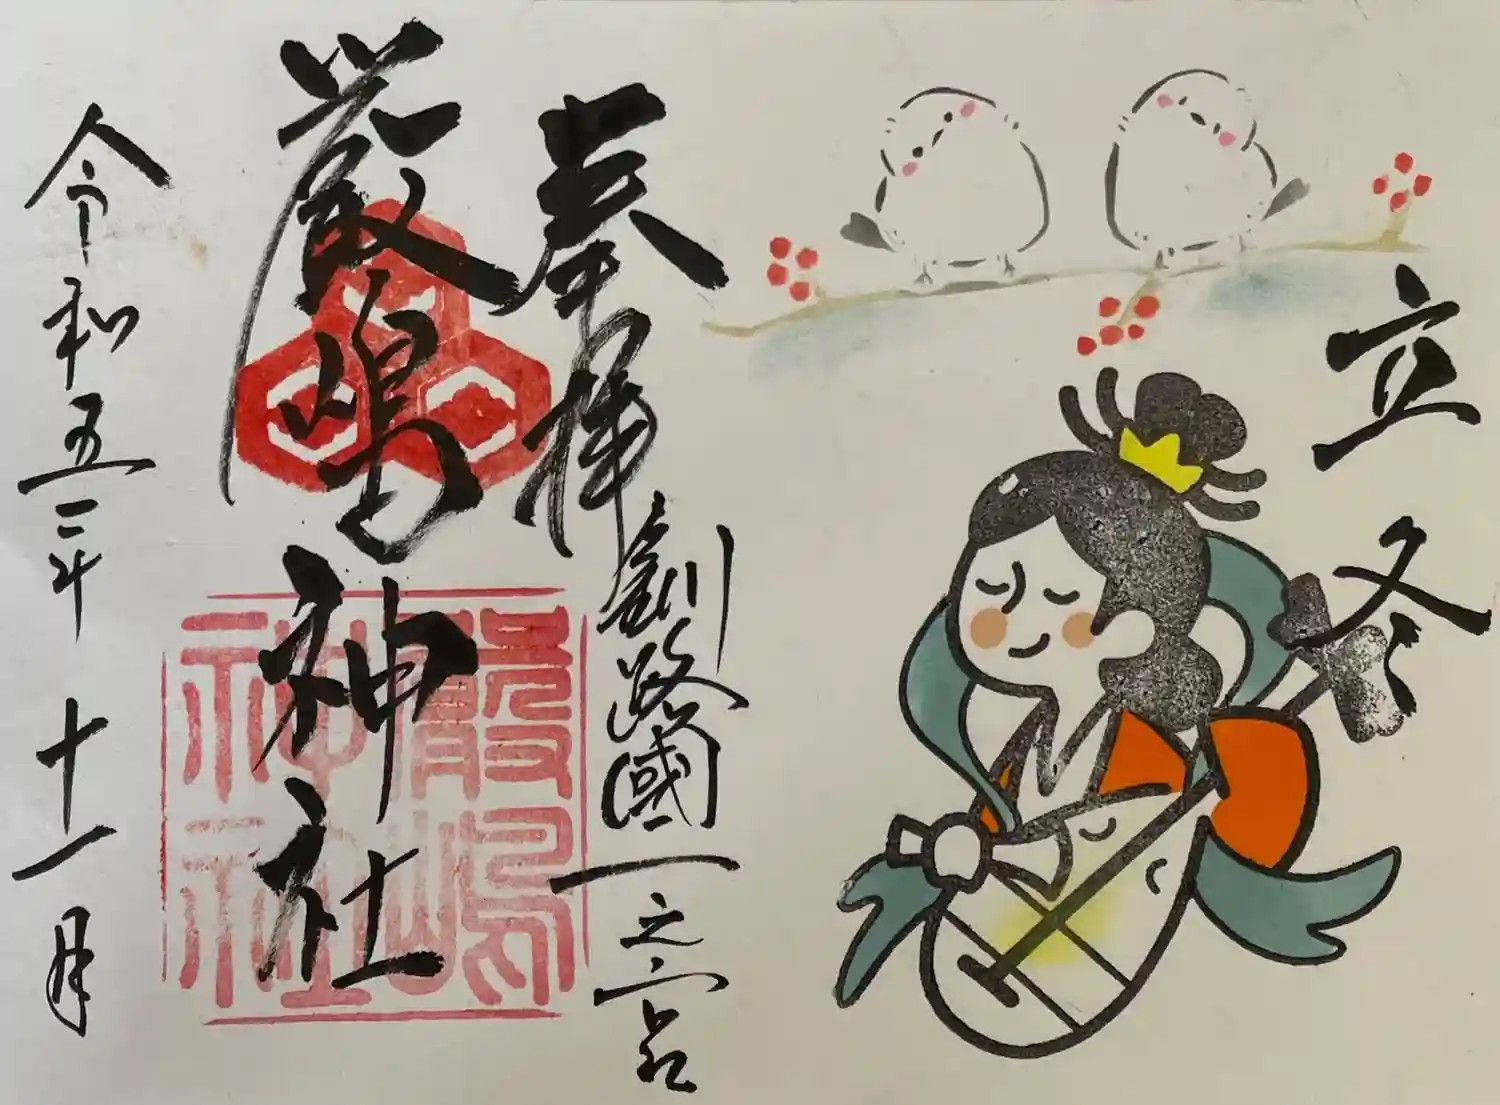 立冬
奉拝
釧路國一之宮
厳嶋神社
嚴嶋神社
令和五年十一月